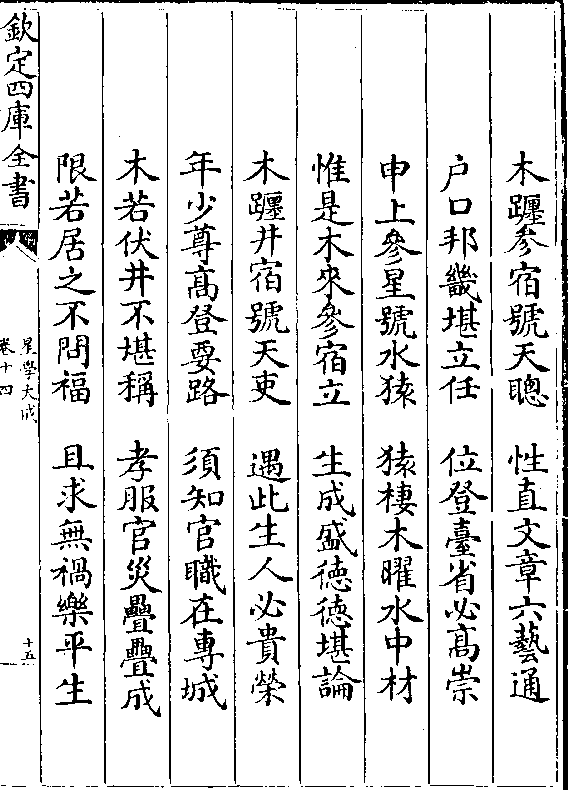 木躔參宿號天聰　性直文章六藝通
户口邦畿堪立任　位登臺省必髙崇
申上參星號水猿　猿棲木曜水中材
惟是木來參宿立　生成盛徳徳堪論
木躔井宿號天吏　遇此生人必貴榮
年少尊髙登要路　須知官職在專城
木若伏井不堪稱　孝服官災疊疊成
限若居之不問福　且求無禍樂平生
欽定四庫全書
星學大成
卷十四
十五